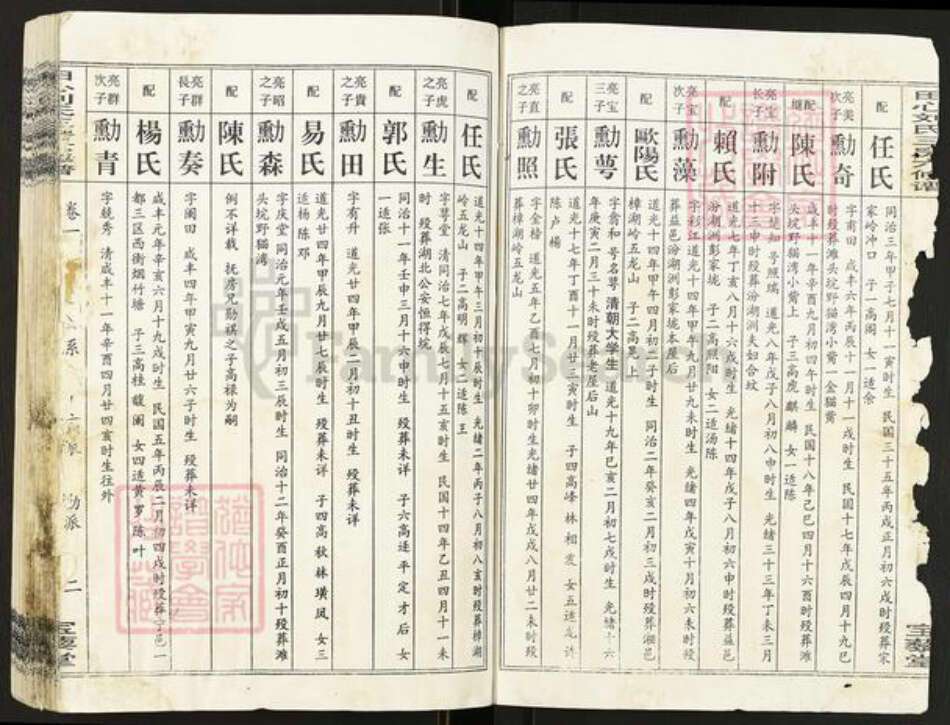 配
任氏
同治三年甲子七月十一寅时生 民国三十五年丙戍正月初六戌时殁葬宋
家岭冲口 子一高阁 女一适余
亮美
次子
勳奇
字甫田 咸丰六年丙辰十一月十一戌时生 民国十七年戊辰四月十九巳
时殁葬滩头坑野猫湾小黄一金猫黄
继配
陳氏
咸丰十一年辛酉九月初四午时生 民国十八年己巳四月十六酉时殁葬滩
头坑野猫湾小黄上 子三高虎 麒 麟 女一适陈
亮宝
长子
勳附
字楚知 号照瑞 道光八年戊子八月初八申时生 光绪三十三年丁未三月
十三申时殁葬汾湖洲夫妇合坟
配
賴氏
道光七年丁亥八月十六戌时生 光绪十四年戊子八月初六申时殁葬益邑
汾湖洲彭家垅 子二高照 阳 女二适汤 陈
亮宝
次子
勳藻
字彩江 道光十四年甲午九月廿九未时生 光绪四年戊寅十月初六未时殁
葬益邑汾湖洲彭家垅本屋后
配
歐陽氏
道光十四年甲午四月初二子时生 同治二年癸亥二月初三戌时殁葬湘邑
樟湖岭五龙山 子二高晃 上
亮宝
三子
勳萼
字翕和 号名萼 清朝大学生 道光十九年己亥二月初七戌时生 光绪十六
年庚寅二月三十未时殁葬老屋后山
配
張氏
道光十七年丁酉十一月廿三寅时生 子四高峰 林 相 发 女五适龙 许
陈 卢 杨
亮直
之子
勳照
字金榜 道光五年乙酉七月初十卯时生光绪廿四年戊戌八月廿二未时殁
葬樟湖岭五龙山
配
任氏
道光十四年甲午三月初十辰时生 光绪二年丙子八月初八亥时殁葬樟湖
岭五龙山 子二高明 辉 女二适陈 王
亮虎
之子
勳生
字萼堂 清同治七年戊辰七月十五亥时生 民国十四年乙丑四月十一未
时 殁葬湖北公安恒得垸
配
郭氏
同治十一年壬申三月十六申时生 殁葬未详 子六高连 平 定 才 后 女
一适张
亮貴
之子
勳田
字有升 道光廿四年甲辰二月初十丑时生 殁葬未详
配
易氏
道光廿四年甲辰九月廿七辰时生 殁葬未详 子四高秋 林 璜 凤 女三
适杨 陈 邓
亮昭
之子
勳森
字庆堂 同治元年壬戌五月初三辰时生 同治十二年癸酉正月初十殁葬滩
头坑野猫湾
配
陳氏
例不详载 抚房兄勋祺之子高禄为嗣
亮群
長子
勳奏
字阑田 咸丰四年甲寅九月廿六子时生 殁葬未详
配
楊氏
咸丰元年辛亥六月十九戌时生 民国五年丙辰二月初四戌时殁葬宁邑一
都三区西衝烟竹塘 子三高桂 馥 阑 女四适黄 罗 陈 叶
亮群
次子
勳青
字竞秀 清咸丰十一年辛酉四月廿四寅时生往外
卷一
系
派
勋派
二
FamilySearch